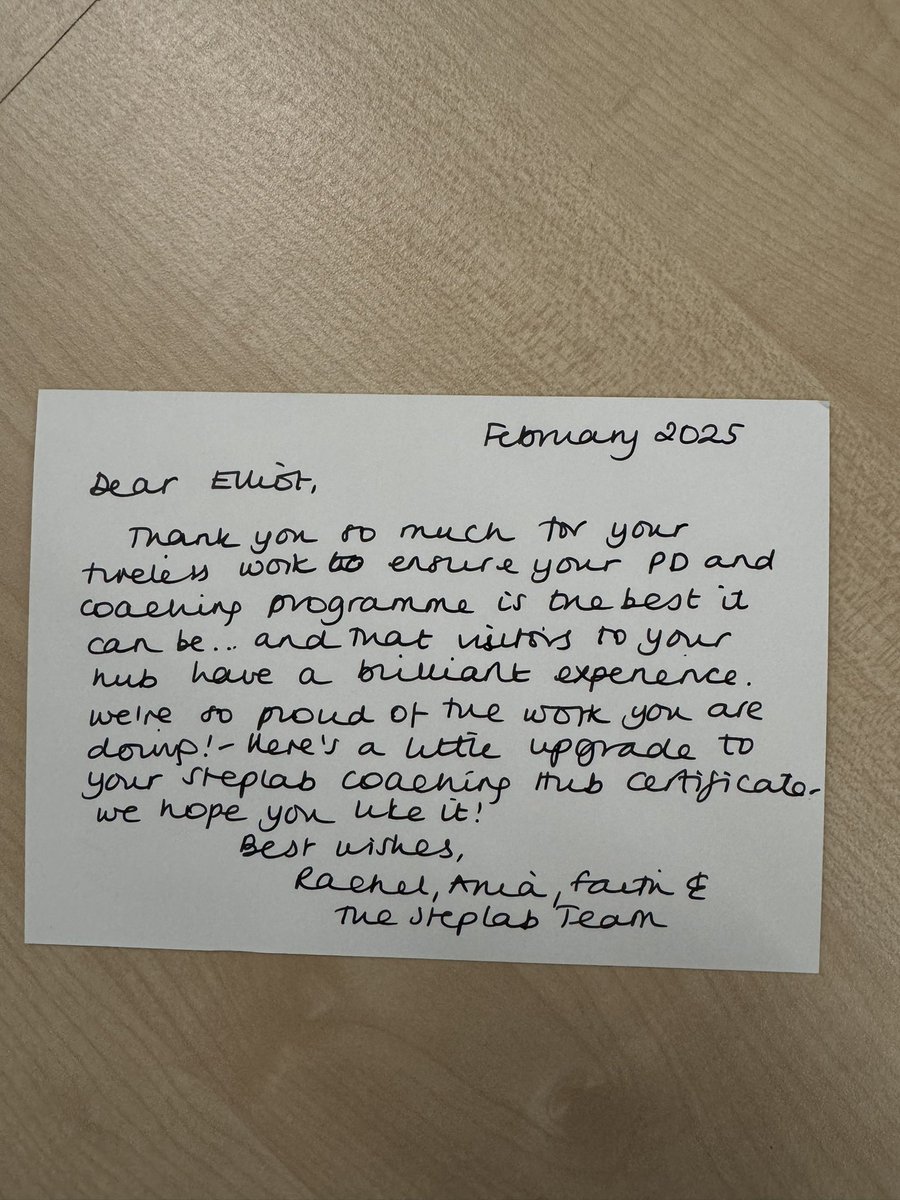 February 2025
Dear Elliot,
Thank you so much for your
tireless work to ensure your PD and
coaching programme is the best it
can be... and that visitors to your
hub have a brilliant experience.
we're so proud of the work you are
doing! - Here's a little upgrade to
your Steplab Coaching Hub Certificate -
we hope you like it!
Best wishes,
Rachel, Ania, Faith &
The Steplab Team